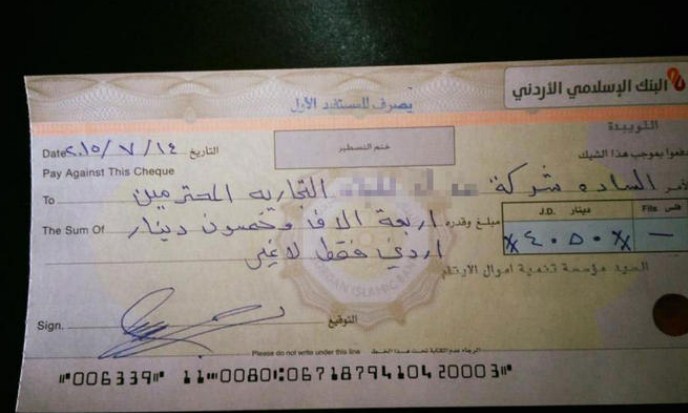 البنك الإسلامي الأردني
يصرف للمستفيد الأول
التويبدة
Date ٢٠١٥/ ٧ /١٤ التاريخ
ختم التسطير
Pay Against This Cheque ادفعوا بموجب هذا الشيك
To الساده شركة التجاريه المحترمين
The Sum Of مبلغ وقدره اربعة الاف وخمسون دينار
اردني فقط لا غير
دينار J.D. فلس Fils
x٤٠٥٠x —
السيد مؤسسة تنمية اموال
Sign. التوقيع
Please do not write under this line الرجاء عدم الكتابة تحت هذا الخط
⑈006339⑈ 11⑉0080⑆06718794104 20003⑈